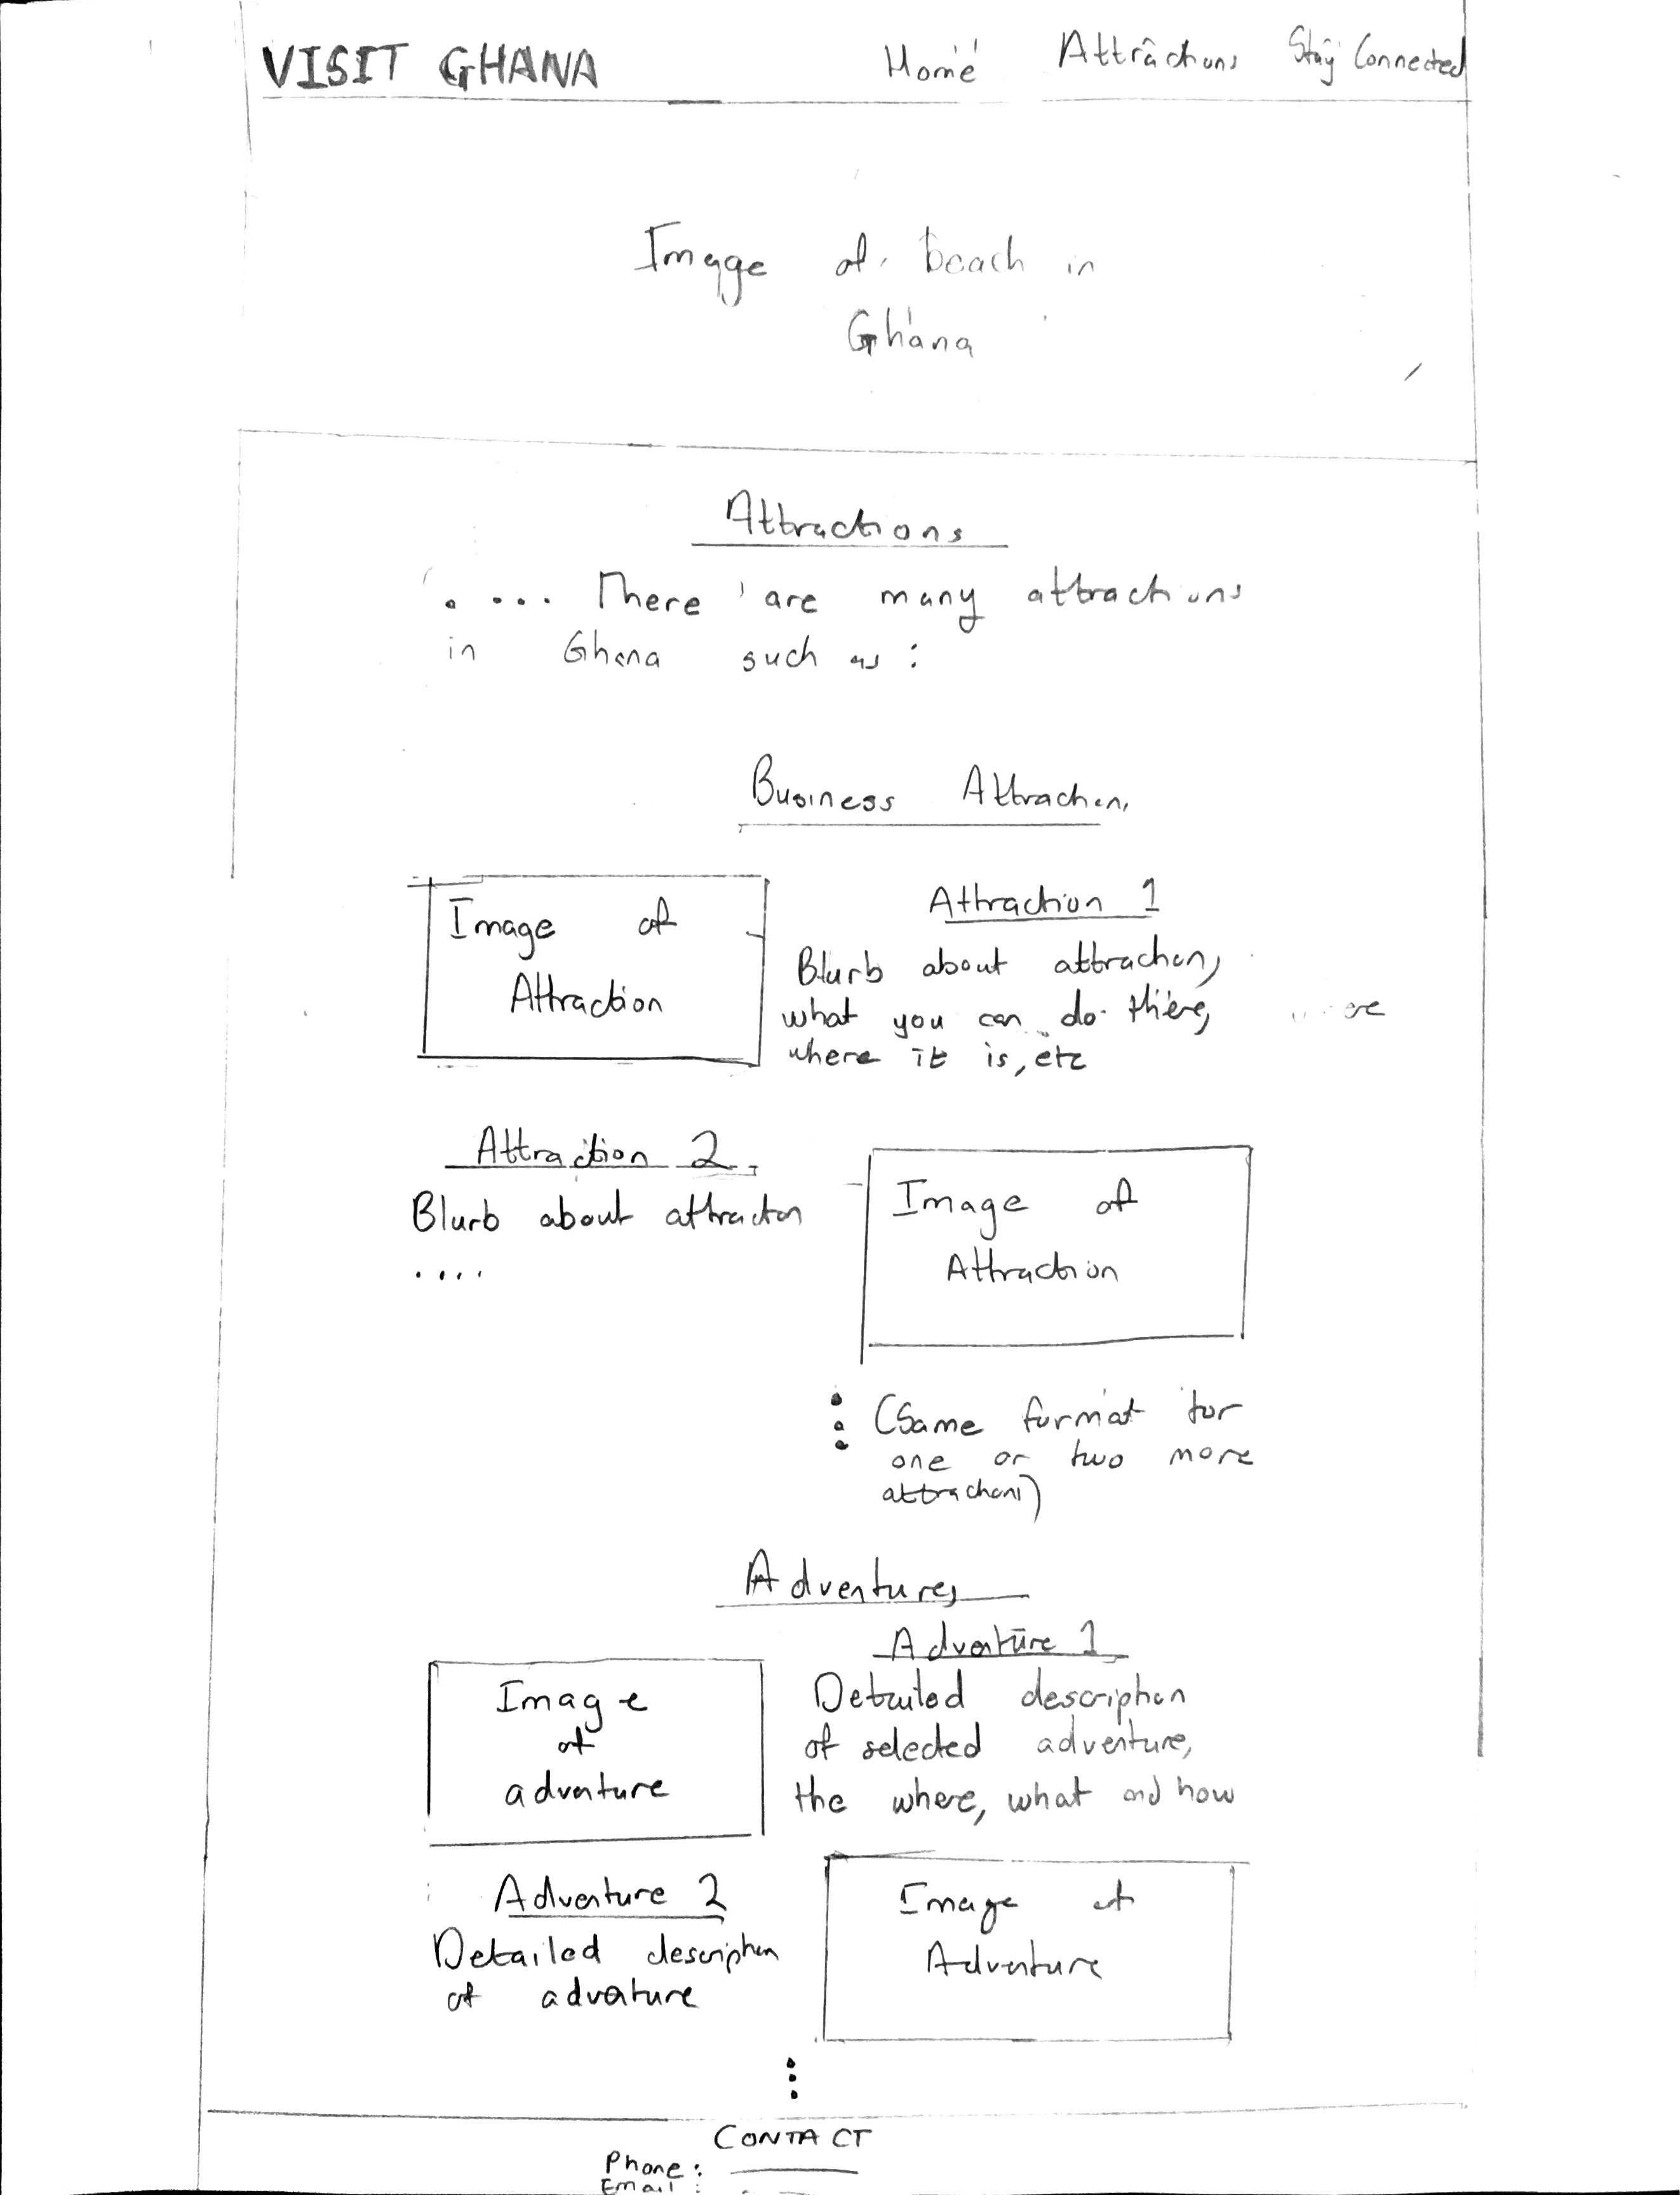 VISIT GHANA Home Attractions Stay Connected
Image of beach in
Ghana
Attractions
.... There are many attractions
in Ghana such as :
Business Attraction
Image of
Attraction
Attraction 1
Blurb about attraction,
what you can do there,
where it is, etc
Attraction 2
Blurb about attraction
....
Image of
Attraction
(Same format for
one or two more
attractions)
Adventures
Image
of
adventure
Adventure 1
Detailed description
of selected adventure,
the where, what and how
Adventure 2
Detailed description
of adventure
Image of
Adventure
CONTACT
Phone :
Email :